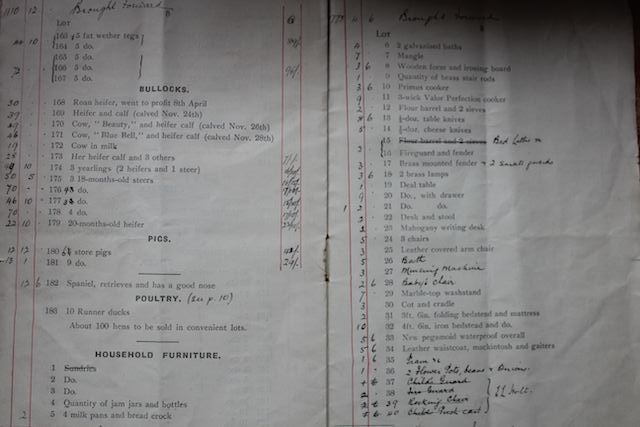 1110 12 Brought Forward
Lot
44 10 163 45 fat wether tegs
164 5 do.
165 5 do.
72 166 5 do.
167 5 do.
BULLOCKS.
30 168 Roan heifer, went to profit 8th April
39 169 Heifer and calf (calved Nov. 24th)
170 Cow, "Beauty," and heifer calf (calved Nov. 26th)
46 171 Cow, "Blue Bell," and heifer calf (calved Nov. 28th)
19 172 Cow in milk
173 Her heifer calf and 3 others
10 174 3 yearlings (2 heifers and 1 steer)
50 5 175 3 18-months-old steers
70 176 do.
46 10 177 do.
70 178 4 do.
22 10 179 20-months-old heifer
PIGS.
12 12 180 store pigs
13 1 181 9 do.
12 6 182 Spaniel, retrieves and has a good nose
POULTRY. (see p. 10)
183 10 Runner ducks
About 100 hens to be sold in convenient lots.
HOUSEHOLD FURNITURE.
1 Sundries
2 Do.
3 Do.
4 Quantity of jam jars and bottles
2 5 4 milk pans and bread crock
4 6 Brought Forward
Lot
4 6 2 galvanised baths
7 7 Mangle
3 6 8 Wooden form and ironing board
1 9 Quantity of brass stair rods
3 6 10 Primus cooker
9 11 3-wick Valor Perfection cooker
2 12 Flour barrel and 2 sieves
6 13 ½-doz. table knives
5 14 ½-doz. cheese knives
15 Flour barrel and 2 sieves
2 16 Fireguard and fender
3 17 Brass mounted fender + 2 small
3 6 18 2 brass lamps
19 Deal table
20 Do., with drawer
1 2 21 Do. do.
22 Desk and stool
23 Mahogany writing desk
24 3 chairs
25 Leather covered arm chair
5 26 Bath
3 27 Mincing Machine
2 6 28 Baby's Chair
29 Marble-top washstand
3 30 Cot and cradle
31 3ft. 6in. folding bedstead and mattress
10 32 4ft. 6in. iron bedstead and do.
5 6 33 New pegamoid waterproof overall
5 6 34 Leather waistcoat, mackintosh and gaiters
1 6 35
1 36 2 Flower Pots,
6 37 Childs Guard
2 38 Guard
2 6 39 Rocking Chair
6 40 Childs Push cart